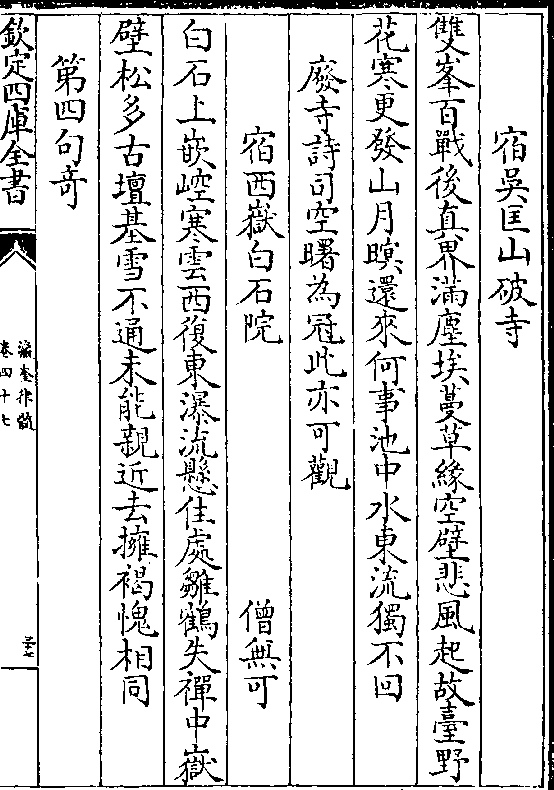 宿吳匡山破寺
雙峯百戰後真界滿塵埃蔓草緣空壁悲風起故臺野
花寒更發山月暝還來何事池中水東流獨不回
廢寺詩司空曙為冠此亦可觀
宿西嶽白石院 僧無可
白石上嵌崆寒雲西復東瀑流懸住處雛鶴失禪中嶽
壁松多古壇基雪不通未能親近去擁褐愧相同
第四句竒
欽定四庫全書
瀛奎律髓
卷四十七